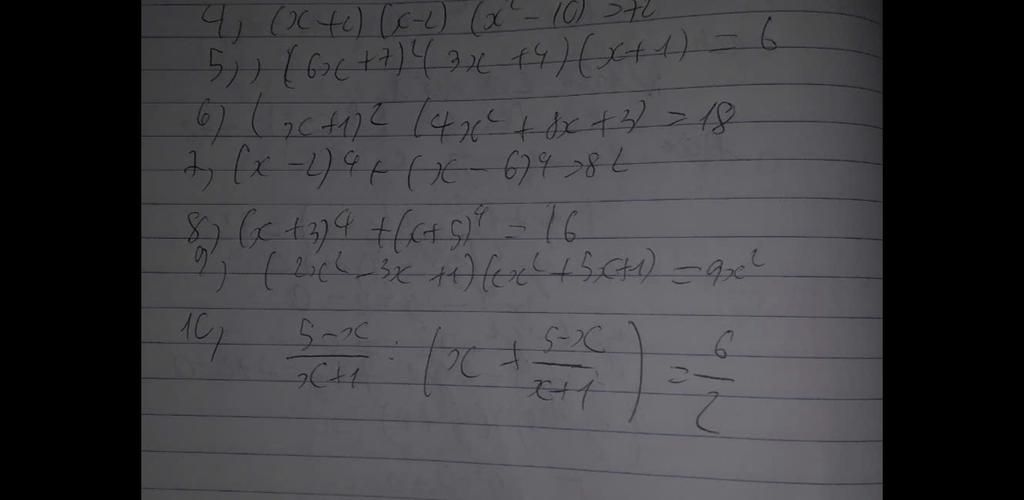 4, (x+2) (x-2) (x² - 10) = 72
5,) (6x+7)² (3x+4) (x+1) = 6
6) (x+1)² (4x² + 8x + 3) = 18
7, (x-2)⁴ + (x-6)⁴ = 82
8) (x+3)⁴ + (x+5)⁴ = 16
9) (2x² - 3x + 1) (2x² + 5x+1) = 9x²
10, \frac{5-x}{x+1} : (x + \frac{5-x}{x+1}) = \frac{6}{2}